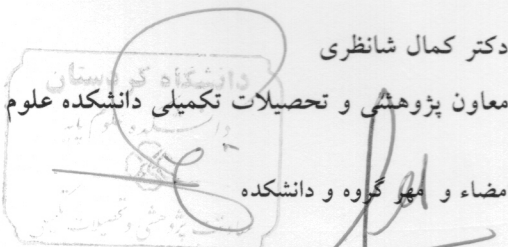 دکتر کمال شانظری
معاون پژوهشی و تحصیلات تکمیلی دانشکده علوم
مضاء و مهر گروه و دانشکده
دانشگاه کردستان